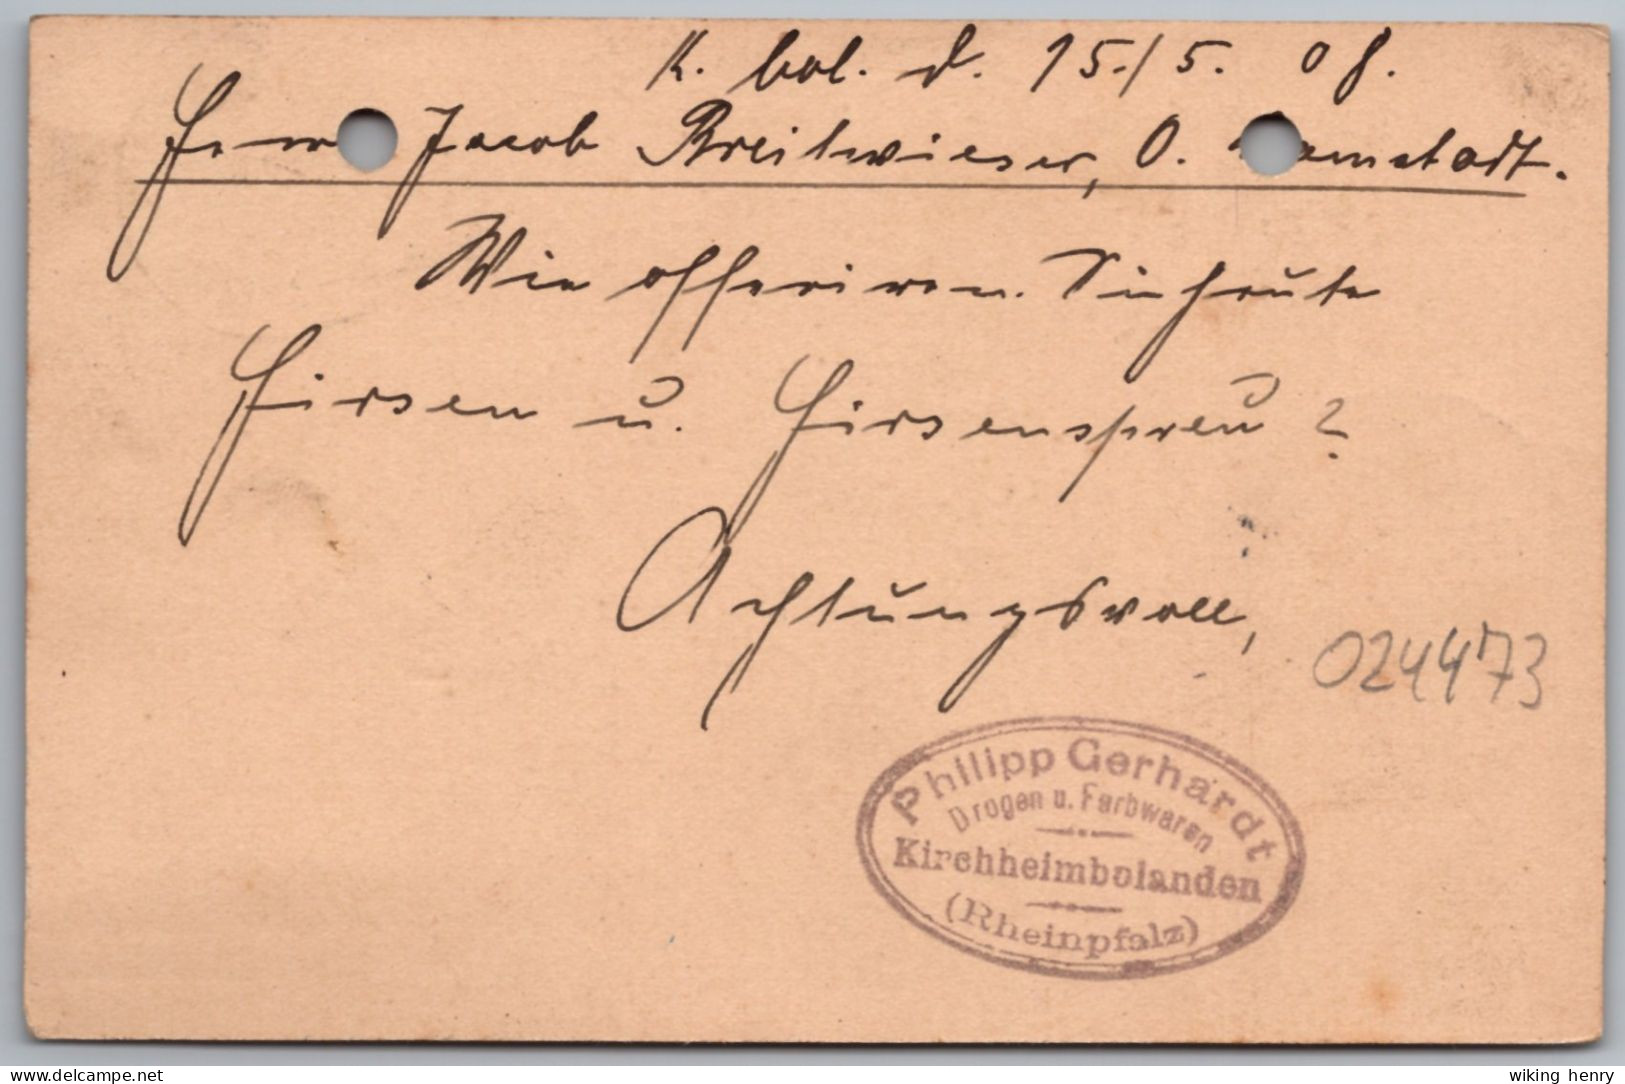 K. bol. d. 15./5. 08.
Herrn Jacob Breitwieser, O. Ramstadt.
Wie offeriren Sie heute
Hirsen u. Hirsenspreu?
Achtungsvoll,
024473
Philipp Gerhardt
Drogen u. Farbwaren
Kirchheimbolanden
(Rheinpfalz)
delcampe.net
wiking_henry